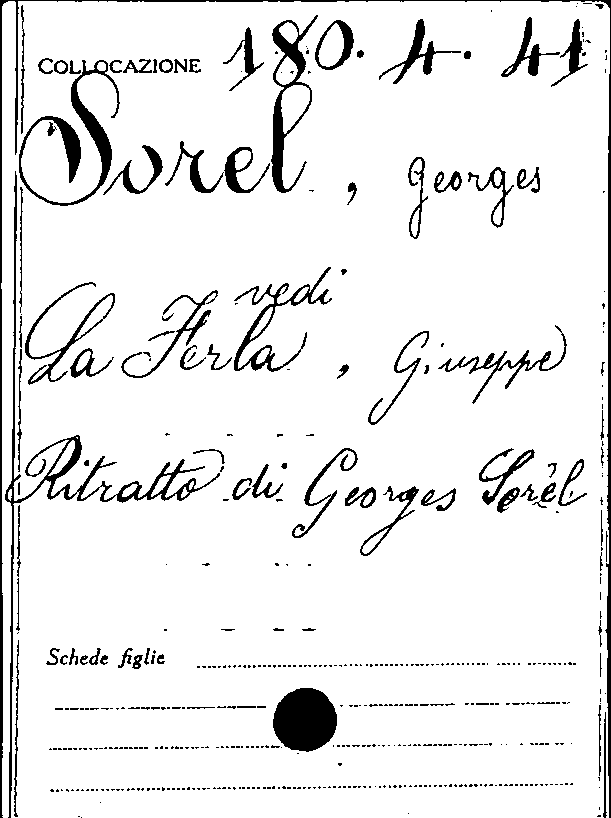 COLLOCAZIONE 180. 4. 41
Sorel, Georges
vedi
La Ferla, Giuseppe
Ritratto di Georges Sorèl
Schede figlie